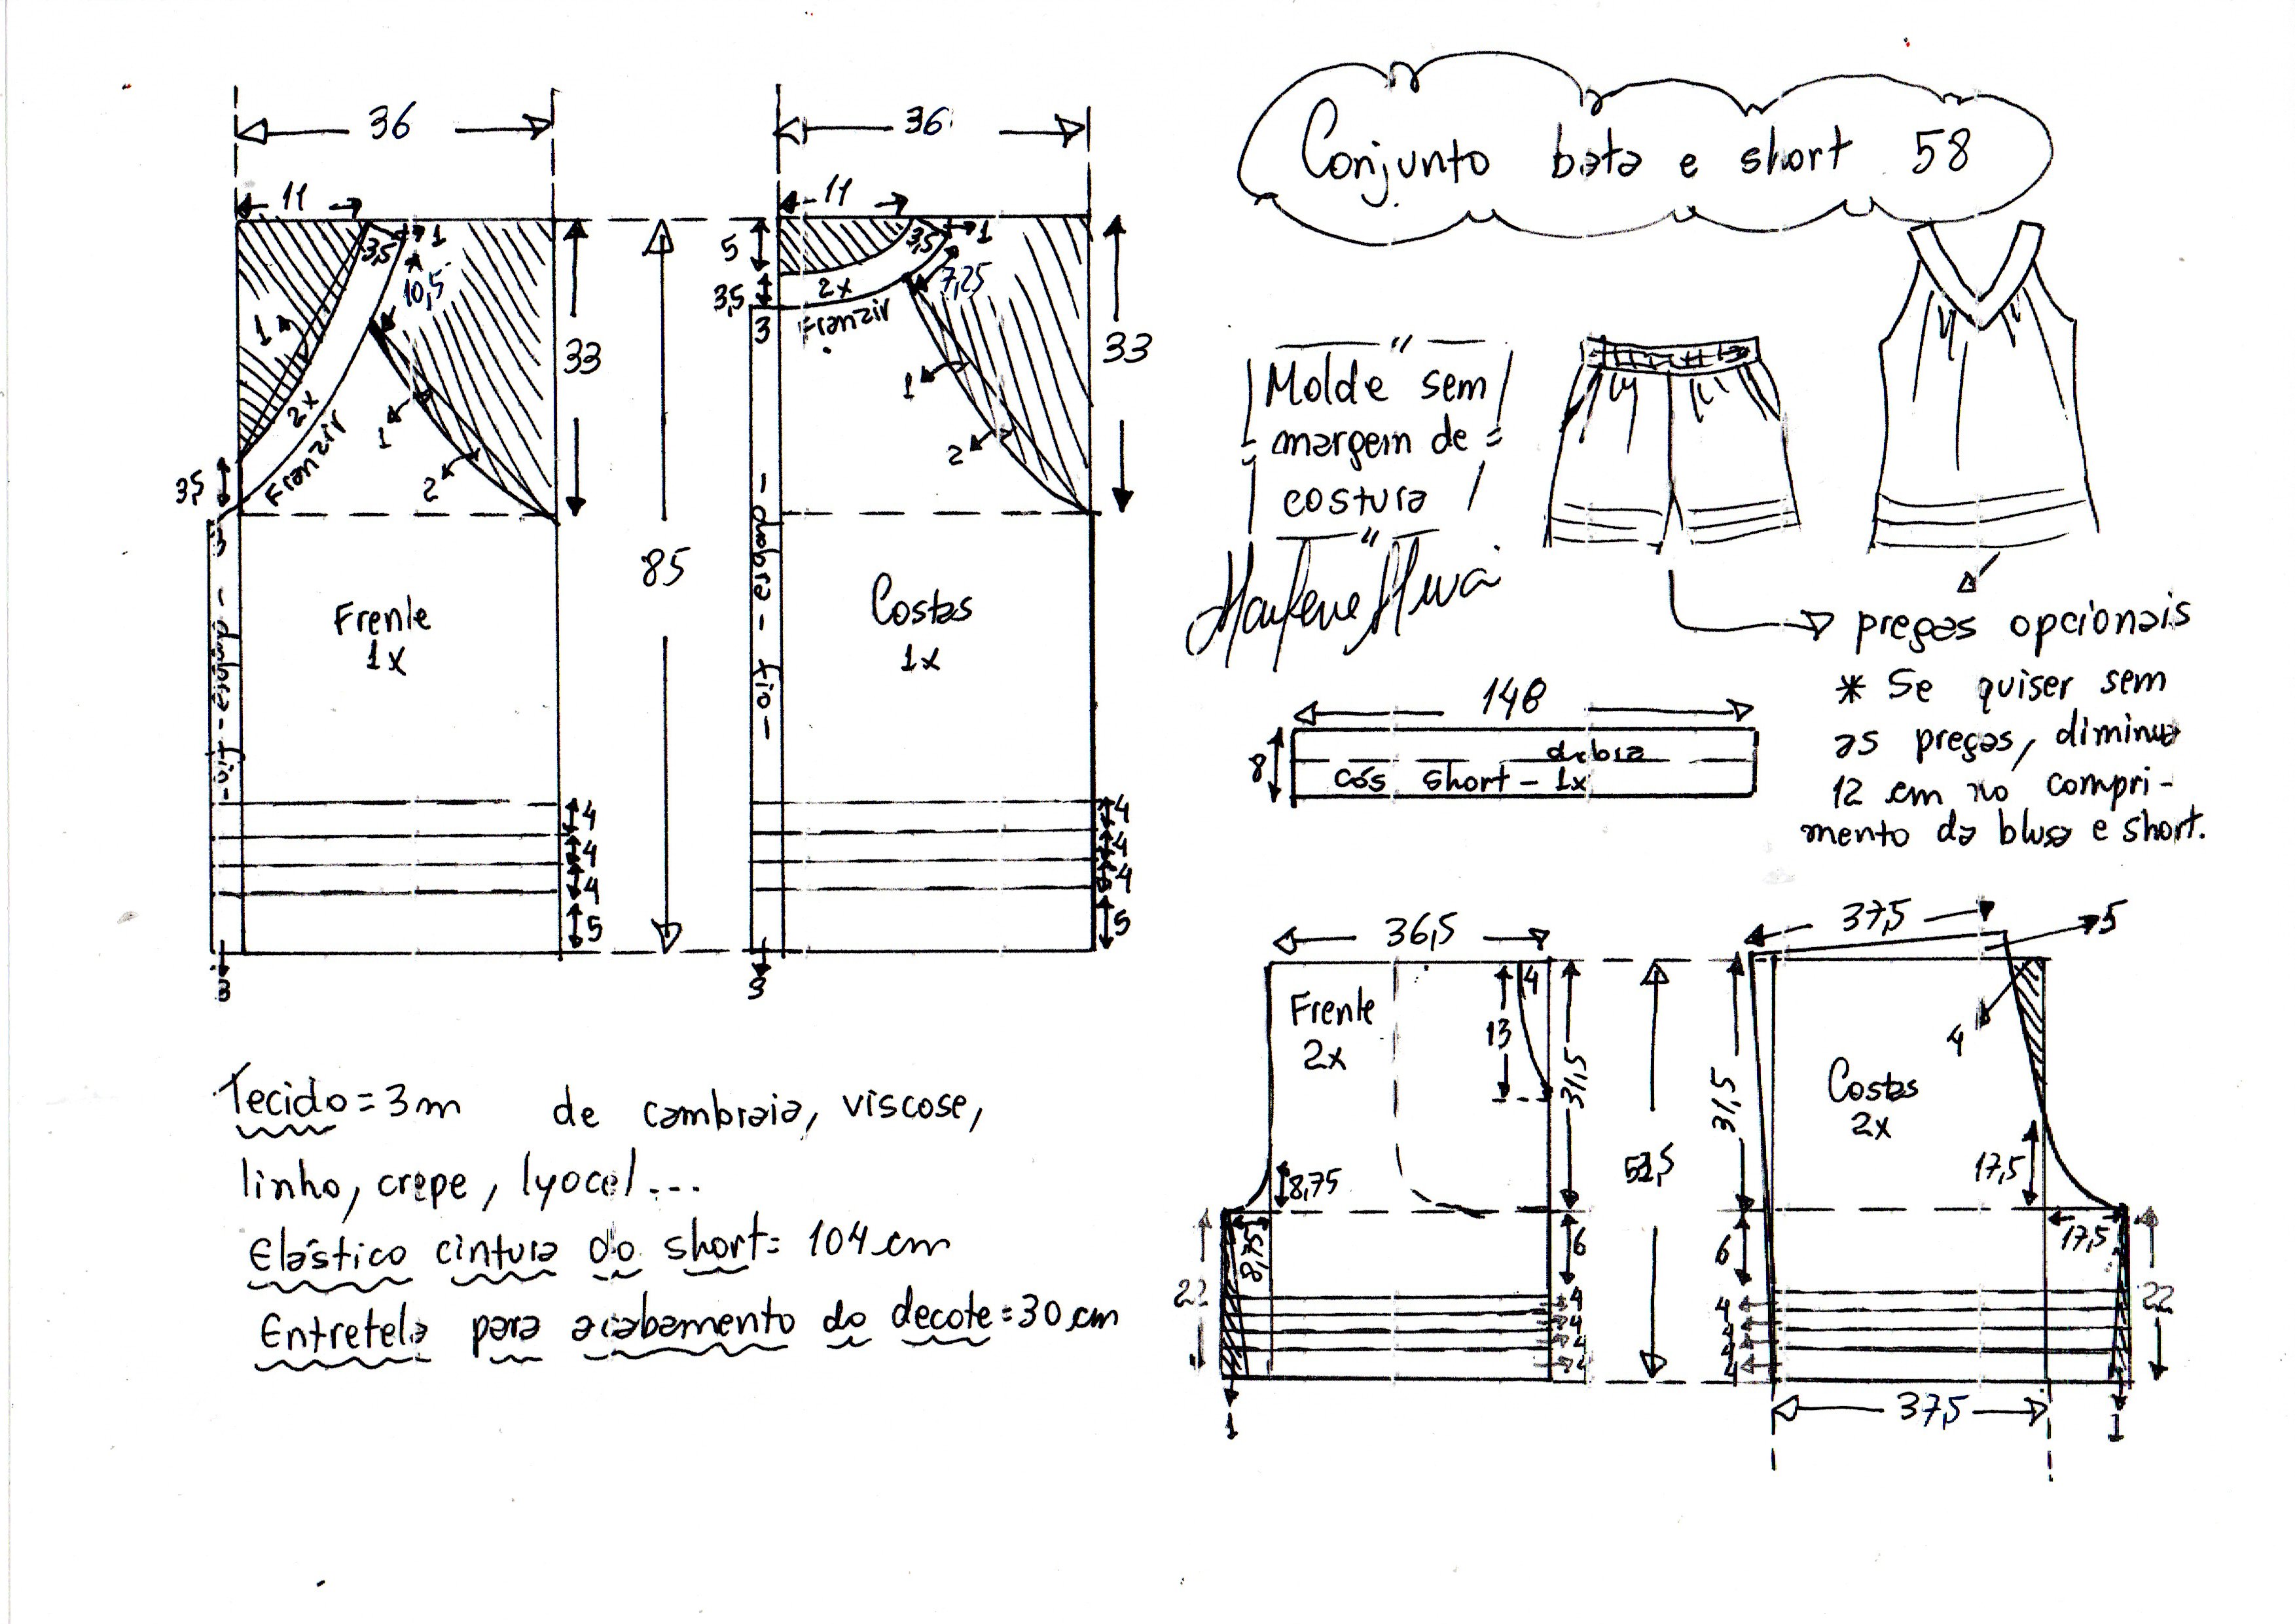 Conjunto bata e short 58
36
11
3,5
1
10,5
1
2x
Franzir
1
2
3,5
3
33
dobra - fio
Frente
1x
4
4
4
5
3
85
36
11
5
3,5
1
7,25
3,5
2x
3
Franzir
1
2
33
- dobra - fio -
Costas
1x
4
4
4
5
3
Molde sem
margem de
costura
pregas opcionais
* Se quiser sem
as pregas, diminua
12 cm no compri-
mento da blusa e short.
148
8
dobra
cós short - 1x
Tecido = 3m de cambraia, viscose,
linho, crepe, lyocel...
Elástico cintura do short = 104 cm
Entretela para acabamento do decote = 30 cm
36,5
Frente
2x
4
13
31,5
8,75
8,75
22
6
4
4
4
4
1
37,5
5
4
31,5
Costas
2x
17,5
17,5
6
4
4
4
4
22
37,5
1